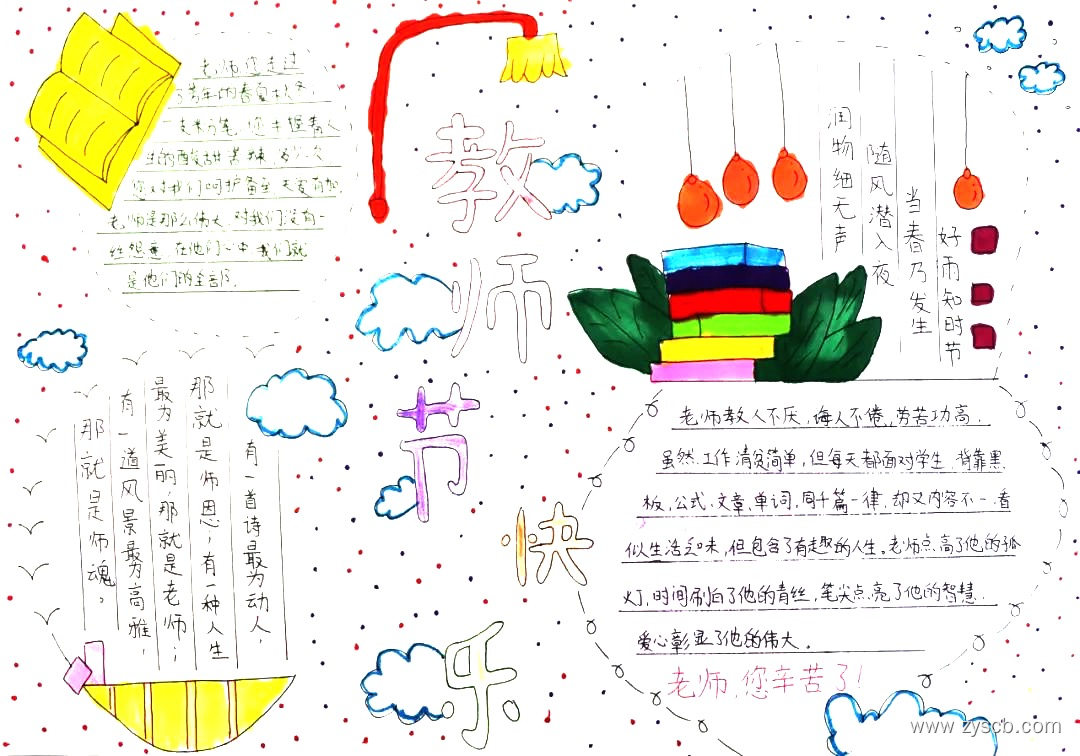 老师您走过
了常年的春夏秋冬，
一支米粉笔，您书握着人
生的酸甜苦辣，多少次
您对我们呵护备至 关爱有加，
老师是那么伟大，对我们没有一
丝怨

在他们心中 我们就
是他们的全部。
教
师
节
快
乐
好雨知时节
当春乃发生
随风潜入夜
润物细无声
有一首诗最为动人，
那就是师恩；有一种人生
最为美丽，那就是老师；
有一道风景最为高雅，
那就是师魂。
老师教人不厌，诲人不倦，劳苦功高．
虽然工作清贫简单，但每天都面对学生，背靠黑
板，公式、文章、单词，同千篇一律，却又内容不一，看
似生活乏味，但包含了有趣的人生。老师点高了他的孤
灯，时间刷白了他的青丝，笔尖点亮了他的智慧．
爱心彰显了他的伟大．
老师，您辛苦了！
www.zyscb.com